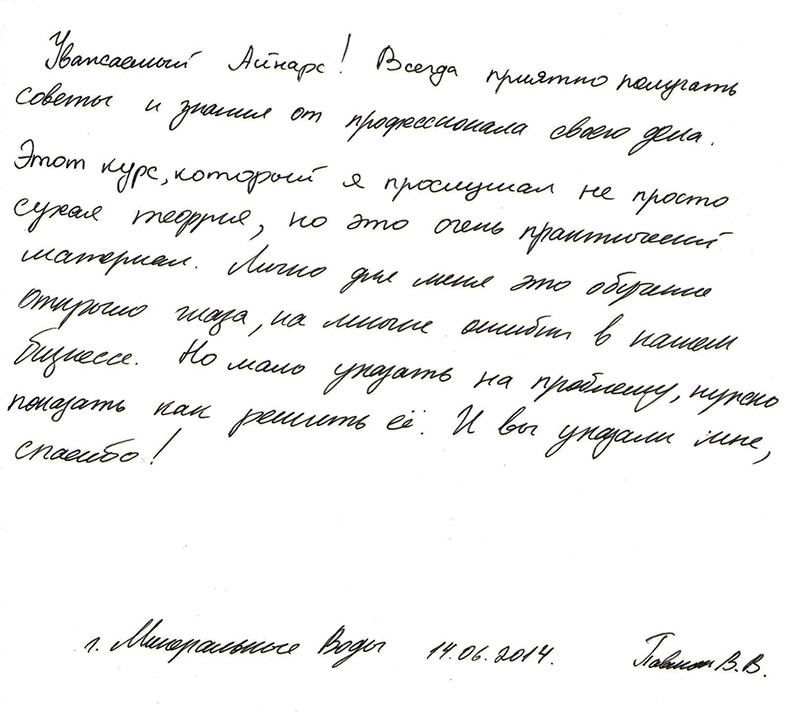 Уважаемый Айнарс! Всегда приятно получать
советы и знания от профессионала своего дела.
Этот курс, который я прослушал не просто
сухая теоррия, но это очень практический
материал. Лично для меня это обучение
открыло глаза, на многие ошибки в нашем
бизнессе. Но мало указать на проблему, нужно
показать как решить её. И вы указали мне,
спасибо!
г. Минеральные Воды 14.06.2014. В.В.